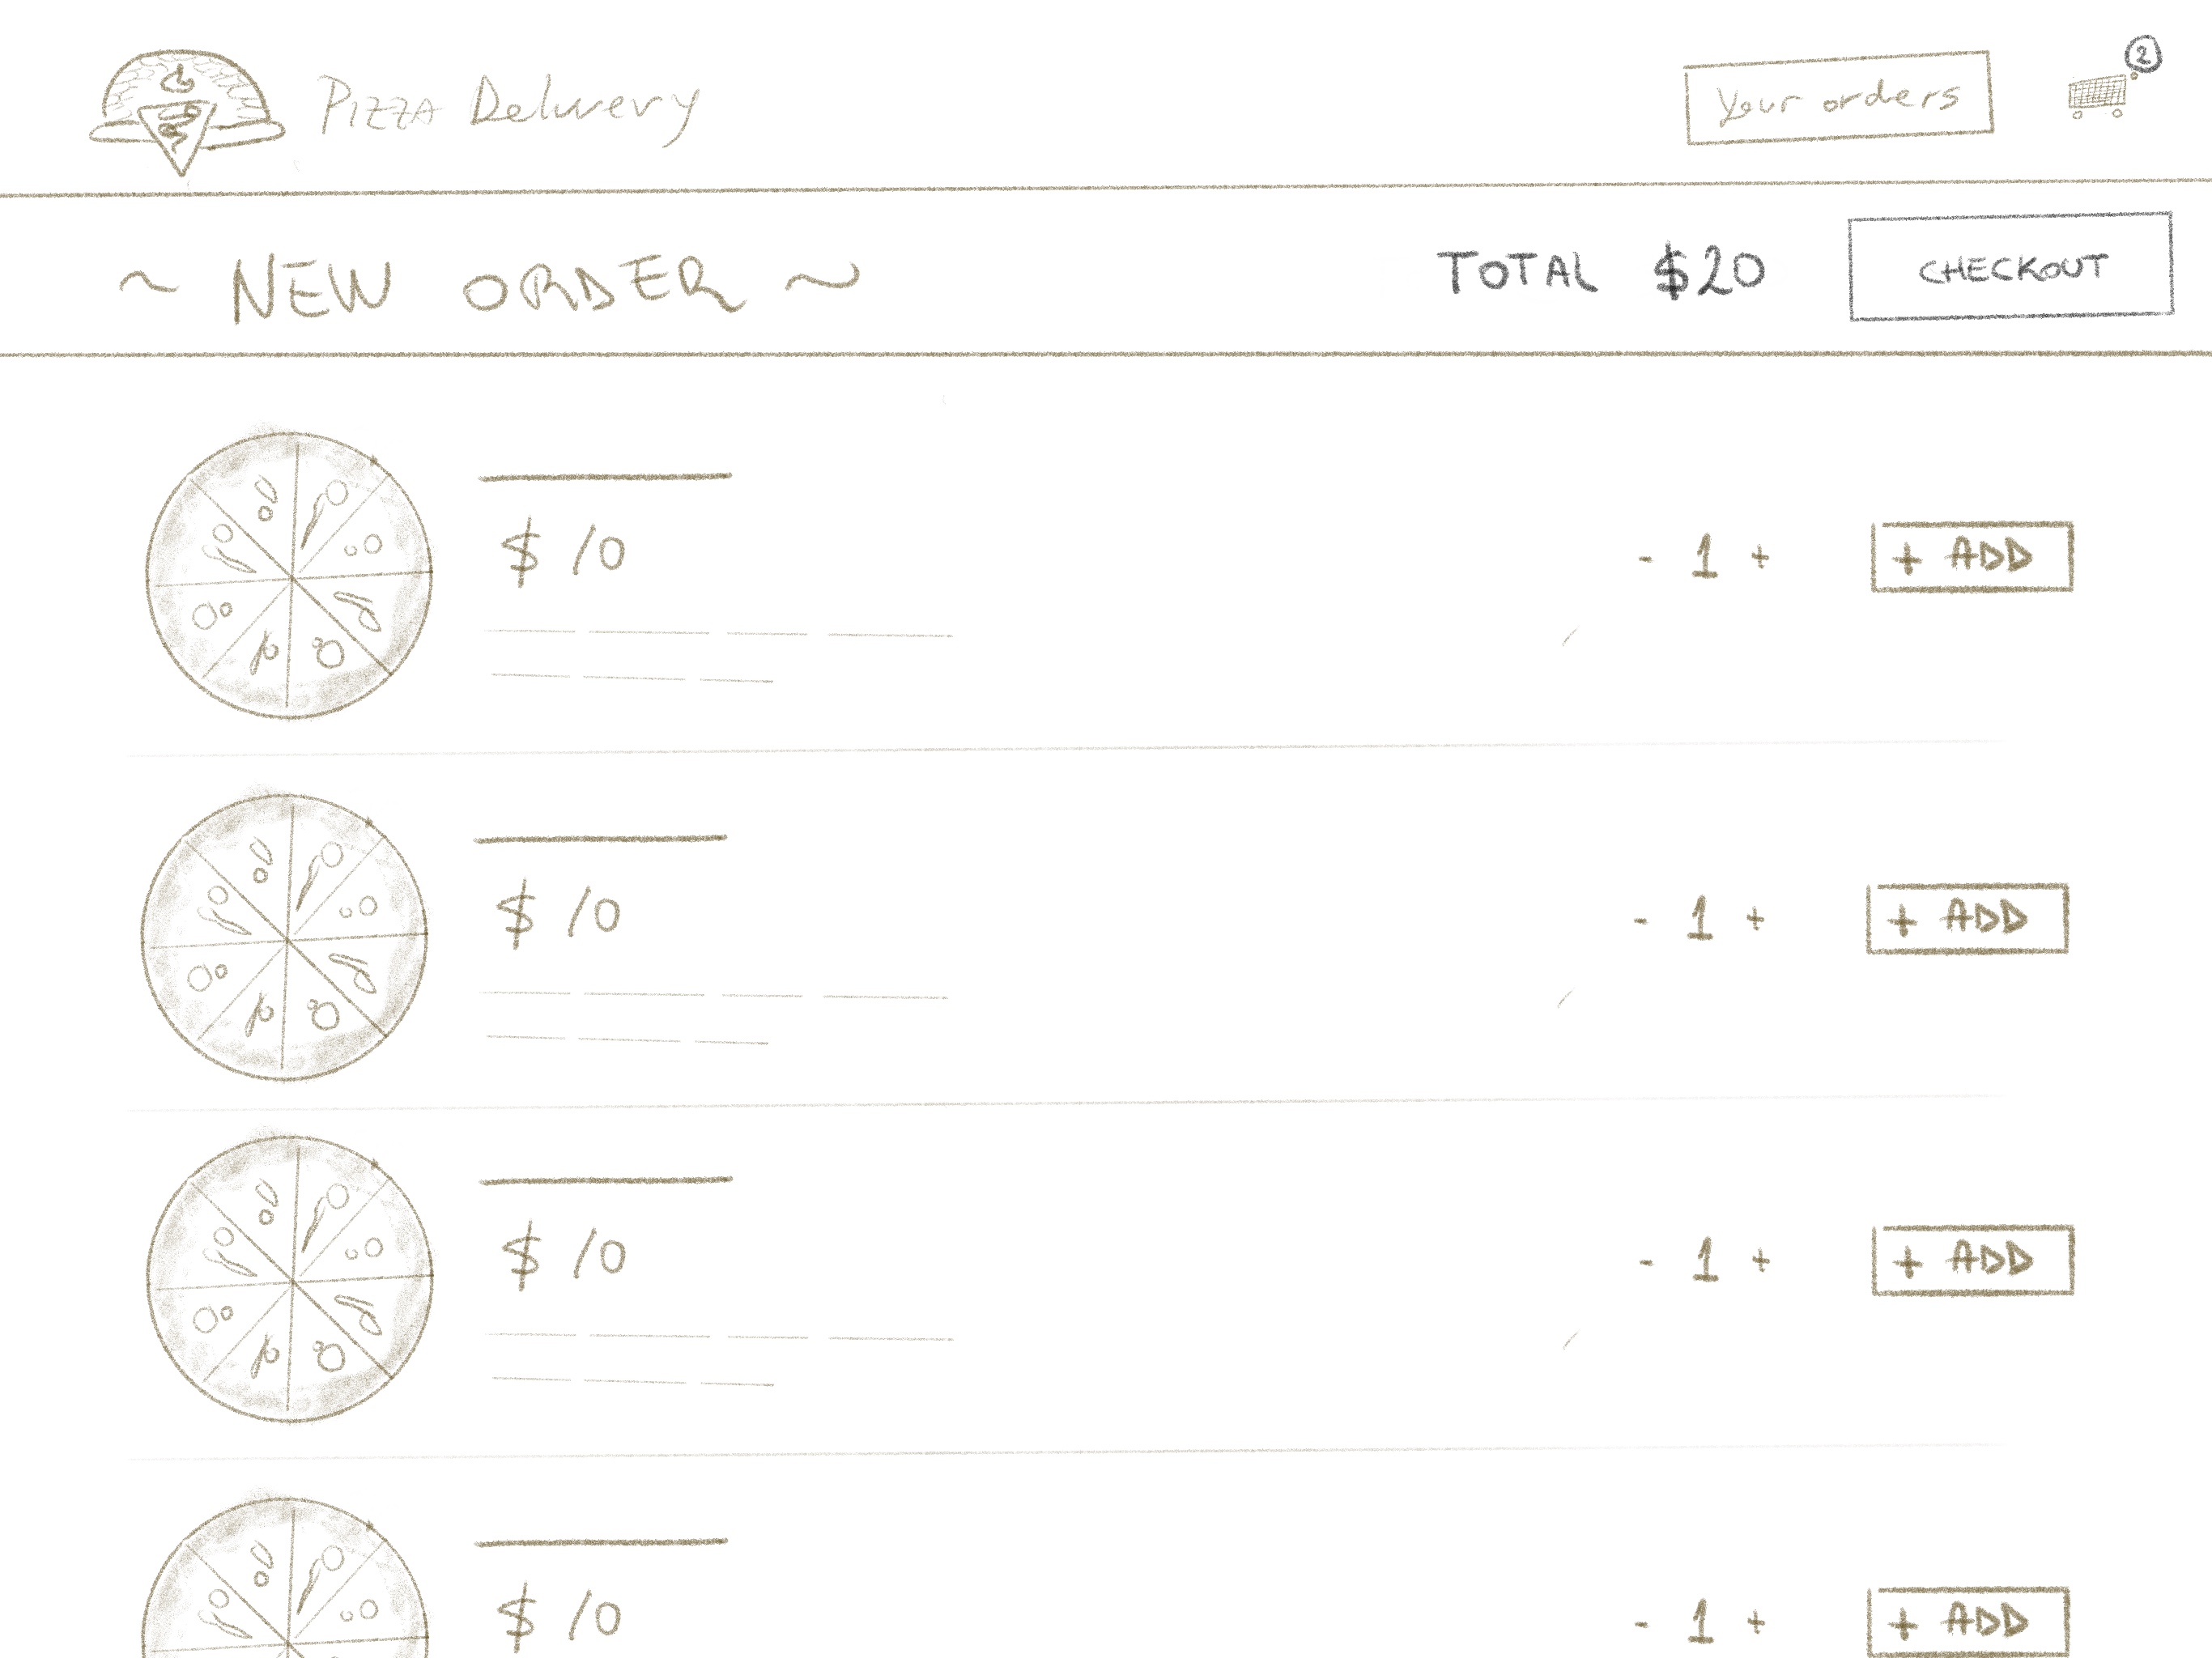 Pizza Delivery
Your orders
2
~ NEW ORDER ~
TOTAL $20
CHECKOUT
$ 10
- 1 +
+ ADD
$ 10
- 1 +
+ ADD
$ 10
- 1 +
+ ADD
$ 10
- 1 +
+ ADD